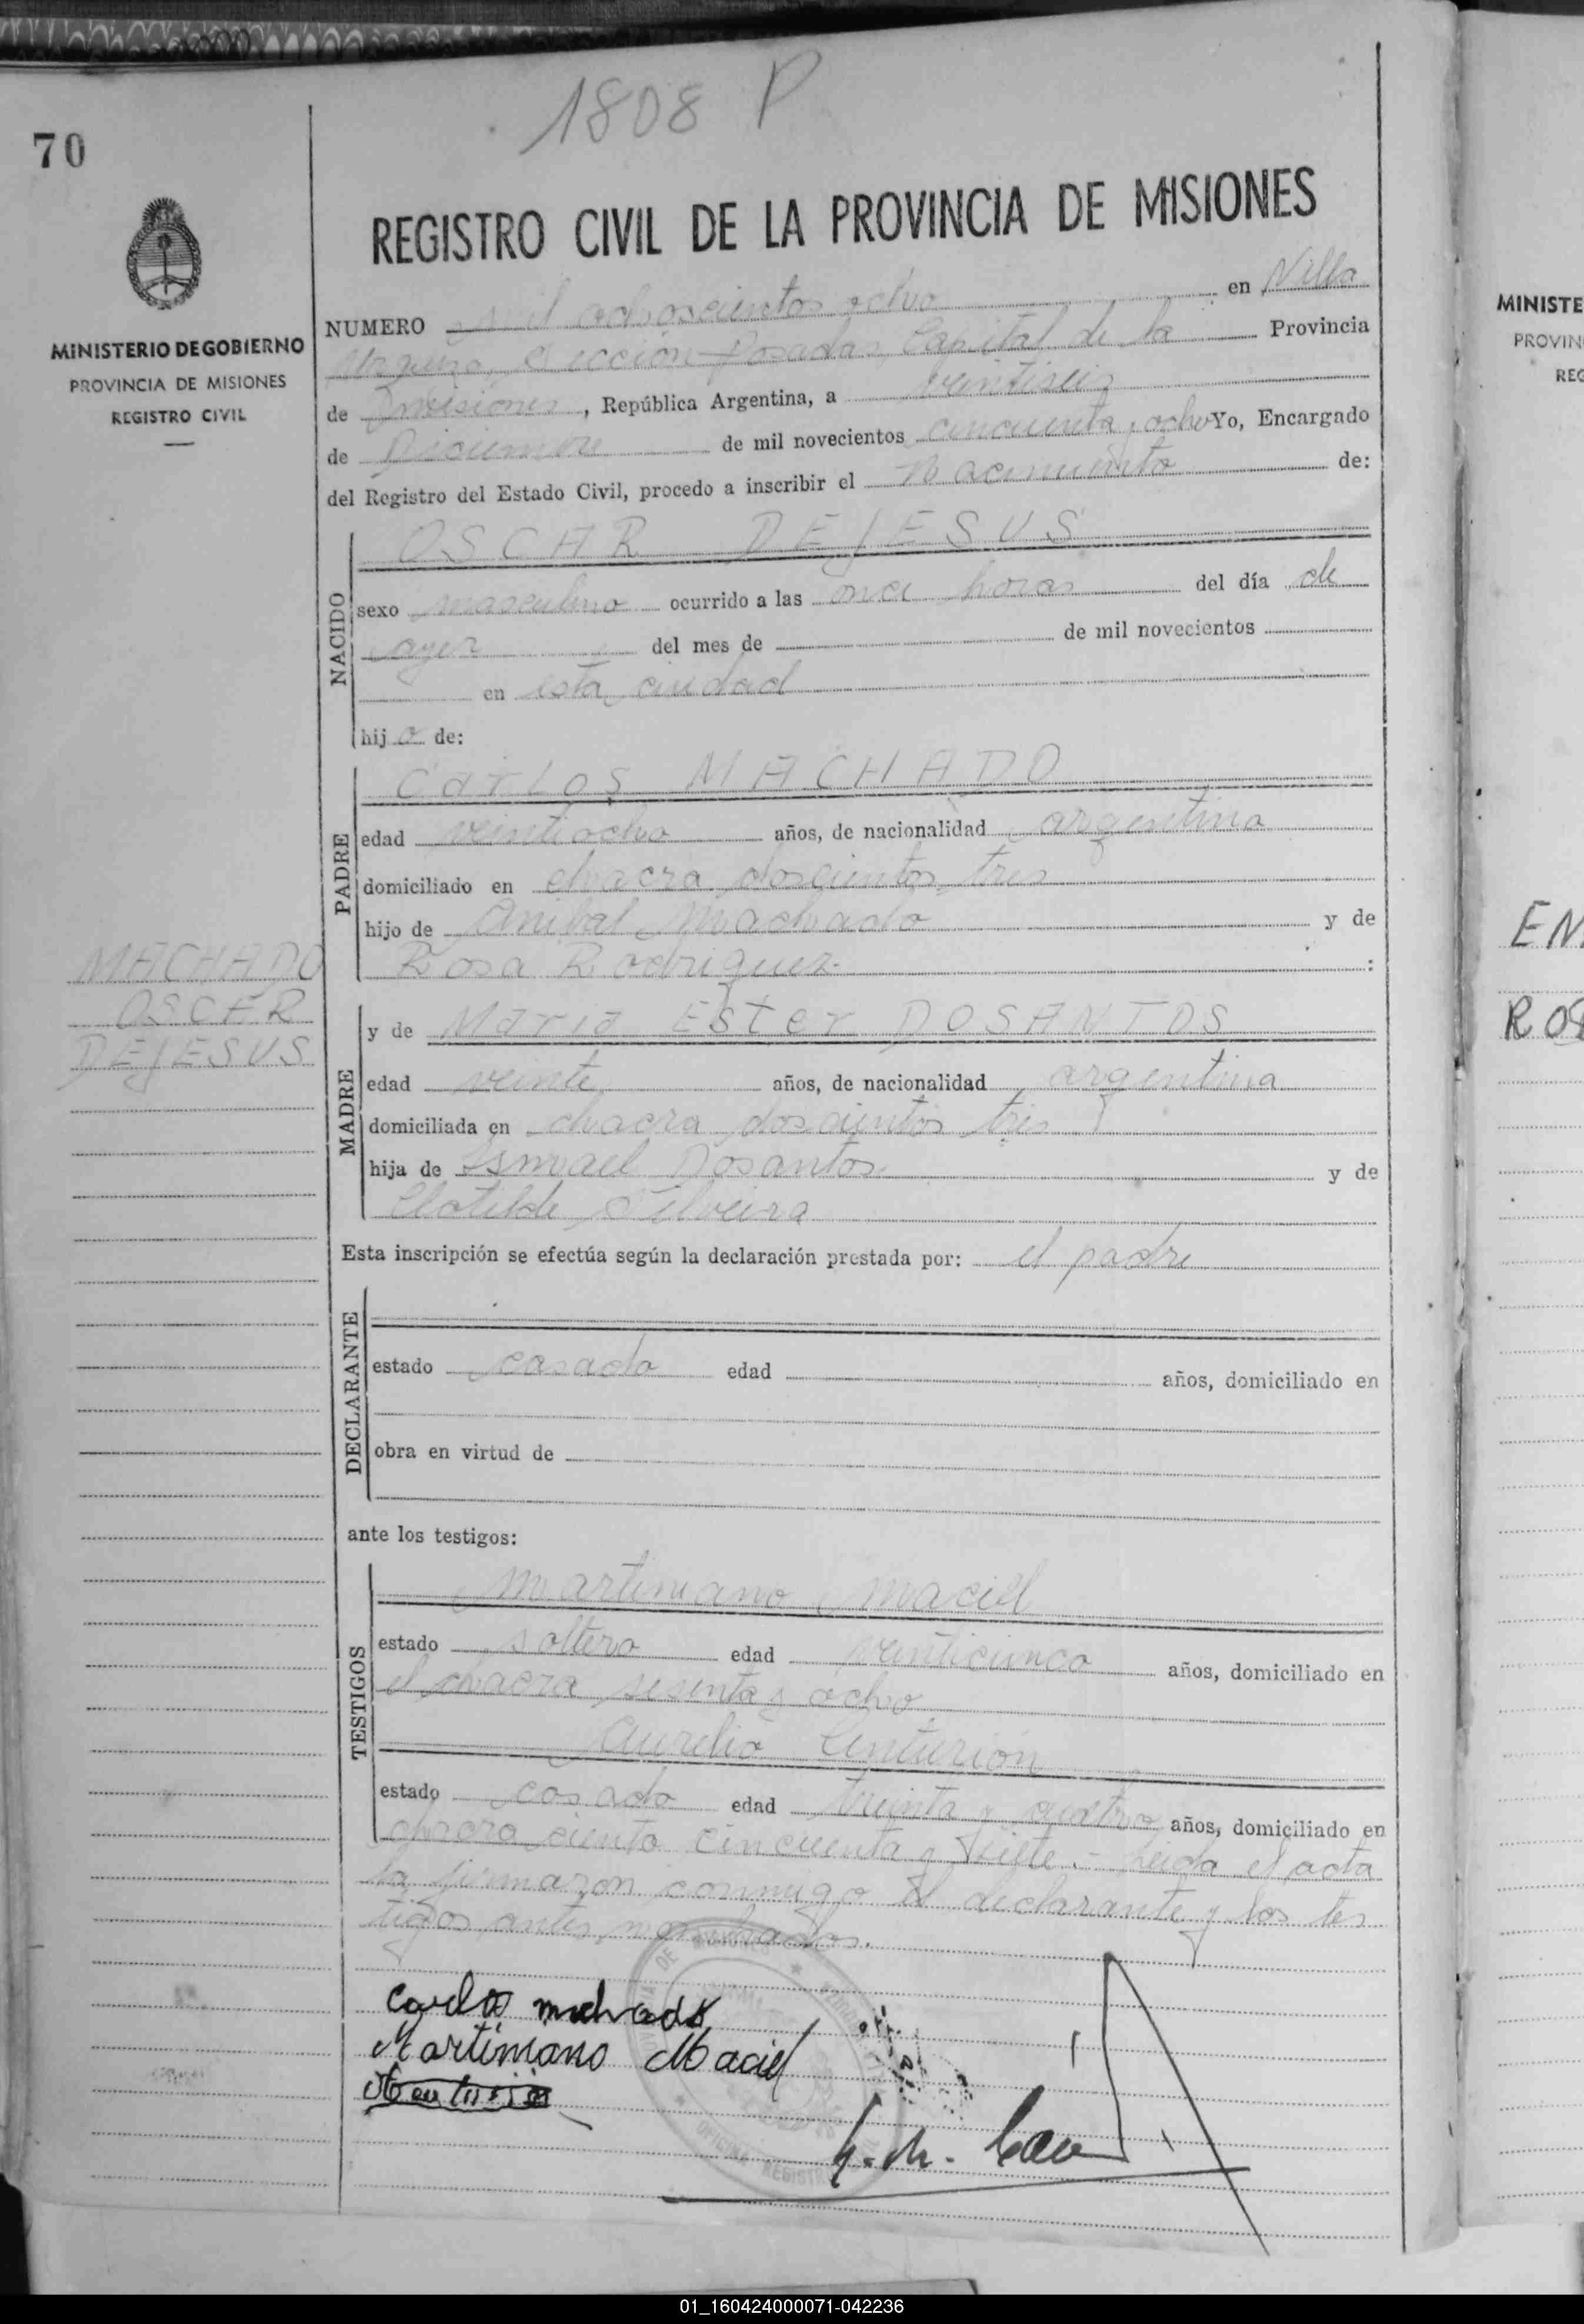 1808 P
70
REGISTRO CIVIL DE LA PROVINCIA DE MISIONES
MINISTERIO DE GOBIERNO
PROVINCIA DE MISIONES
REGISTRO CIVIL
NUMERO mil ochoscientos ocho en Villa
Urquiza, Sección Posadas, Capital de la Provincia
de Misiones, República Argentina, a veintiseis
de Diciembre de mil novecientos cincuenta y ocho Yo, Encargado
del Registro del Estado Civil, procedo a inscribir el Nacimiento de:
NACIDO
OSCAR DEJESUS
sexo masculino ocurrido a las once horas del día de
ayer del mes de de mil novecientos
en esta ciudad
hijo de:
PADRE
Carlos MACHADO
edad veintiocho años, de nacionalidad argentina
domiciliado en chacra doscientos tres
hijo de Anibal Machado y de
Rosa Rodriguez :
MACHADO
OSCER
DEJESUS
MADRE
y de Maria Ester DOSANTOS
edad veinte años, de nacionalidad argentina
domiciliada en chacra doscientos tres
hija de Ismael Dosantos y de
Clotilde Silveira
Esta inscripción se efectúa según la declaración prestada por: el padre
DECLARANTE
estado casado edad años, domiciliado en
obra en virtud de
ante los testigos:
TESTIGOS
Martiniano Maciel
estado soltero edad veinticinco años, domiciliado en
el chacra sesenta y ocho
Aurelio Centurión
estado casado edad treinta y cuatro años, domiciliado en
chacra ciento cincuenta y siete.- Leida el acta
la firmaron conmigo el declarante y los tes
tigos antes nombrados.
Carlos Machado
Martiniano Maciel
MINISTE
PROVIN
REG
EM
ROS
01_160424000071-042236